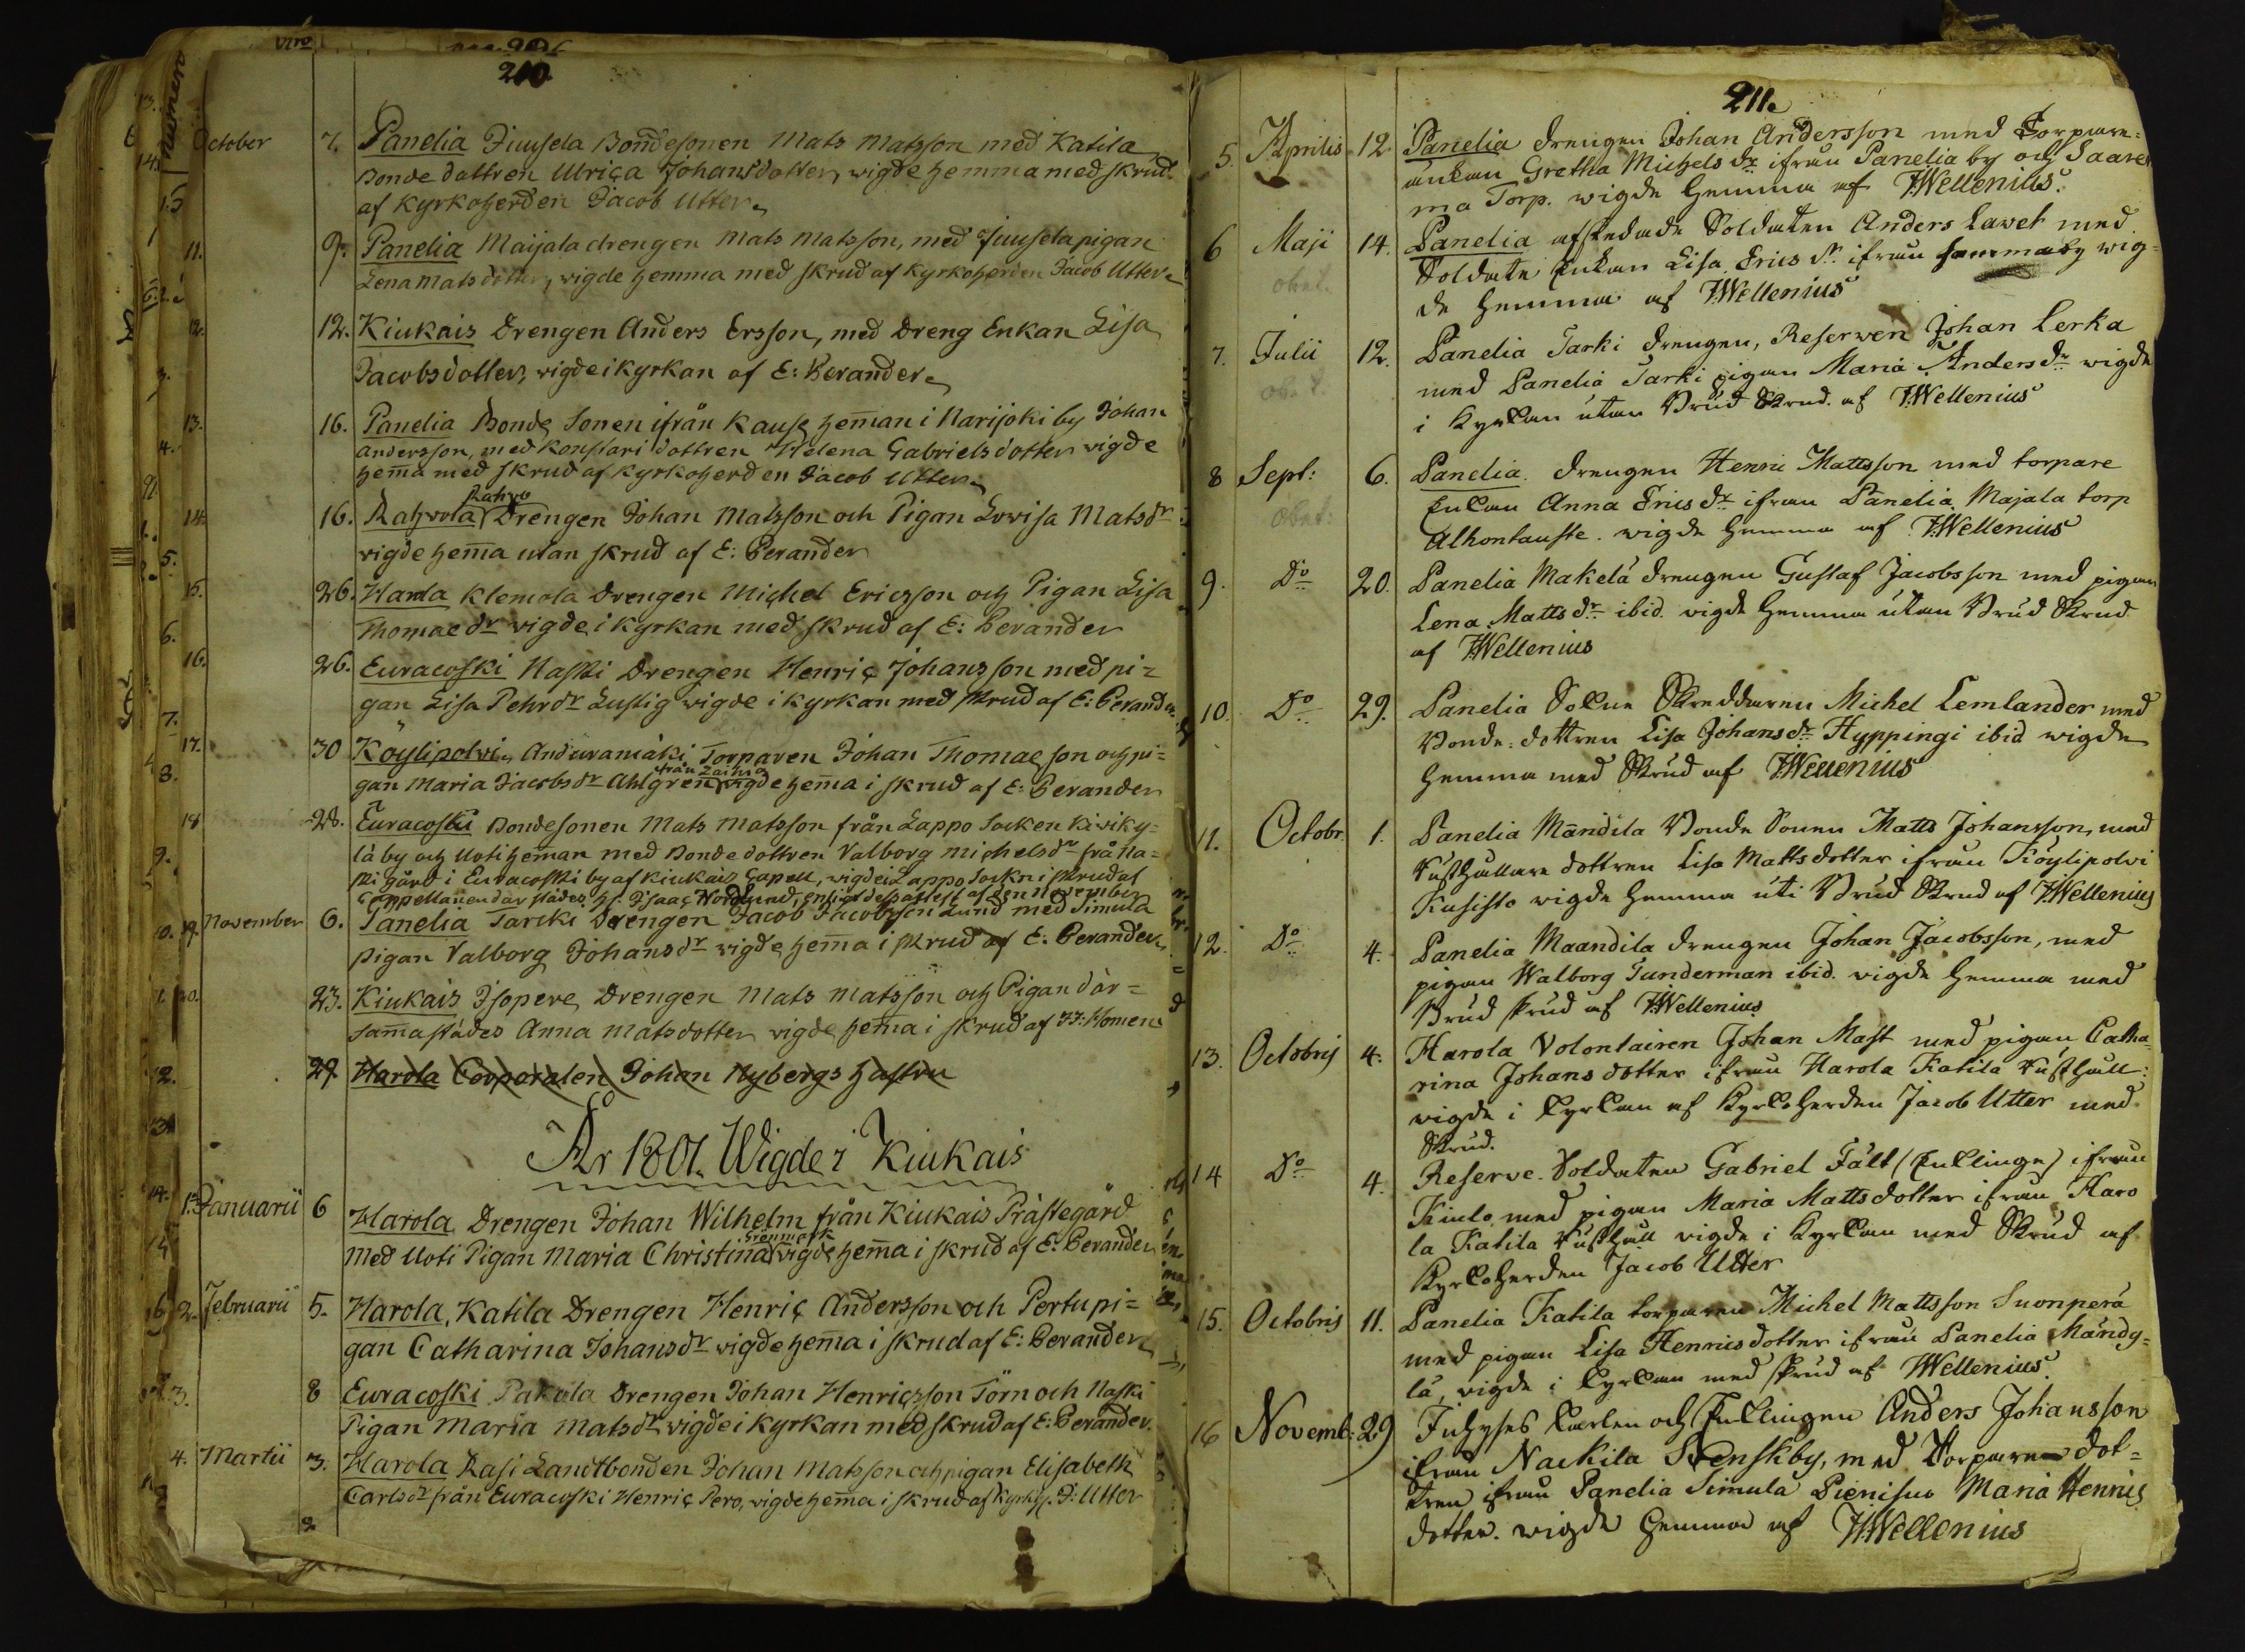 210.
October 7. Panelia Juusela Bondesonen Mats Matsson med Katila
Bonde dottren Ulrica Johansdotter, wigde hemma med skrud
af kyrkoherden Jacob Utter
11. 9. Panelia Maijala drengen Mats Matsson, med Juusela pigan
Lena Matsdotter, wigde hemma med skrud af kyrkoherden Jacob Utter
12. 12. Kiukais Drengen Anders Ersson, med Dreng Enkan Lisa
Jacobsdotter, wigde i kyrkan af E: Berander
13. 16. Panelia Bonde Sonen ifrån Kause hem̅an i Narijoki by Johan
andersson, med Konstari dottren Helena Gabrielsdotter wigde
hem̅a med skrud af kyrkoherden Jacob Utter
Rahvo
14. 16. Rahvola Drengen Johan Matsson och Pigan Lovisa Matsdr
wigde hem̅a utan skrud af E: Berander
15. 26. Harola Klemola Drengen Michel Ericsson och Pigan Lisa
Thomaedr wigde i kyrkan med skrud af E: Berander
16. 26. Euracoski Naski Drengen Henric Johansson med pi=
gan Lisa Pehrdr Lustig wigde i kyrkan med skrud af E: Berander
17. 30 Köylipolvi Anduramäki Torparen Johan Thomae son och pi=
från Laihia
gan Maria Jacobsdr Ahlgren wigde hem̅a i skrud af E: Berander
18 28. Euracoski Bondesonen Mats Matsson från Lappo Socken Kiviky=
lä by och Uoti hem̅an med Bonde dottren Valborg Michelsdr frå Na=
ski gård i Euracoski by af Kiukais Capell, wigde i Lappo Sockn i skrud af
Cappellanen där städes Hr Isaac Nordlund, enligt dess attest af den november
19. November 6. Panelia Tarcki Drengen Jacob Jacobsson Lund med Simula
pigan Valborg Johansdr wigde hem̅a i skrud af E. Berander
20. 23. Kiukais Isopere Drengen Mats Matsson och Pigan där=
sam̅astädes Anna Matsdotter wigde hem̅a i skrud af JJ: Homen
29. Harola Corporalen Johan Nybergs hustru
År 1801. Wigde i Kiukais
1. Januarii 6 Harola Drengen Johan Wilhelm från Kiukais Prästegård
Grenmark
med Uoti Pigan Maria Christina wigde hem̅a i skrud af E: Berander
2. Februarii 5. Harola, Katila Drengen Henric Andersson och Pertu pi=
gan Catharina Johansdr wigde hem̅a i skrud af E: Berander
3. 8 Euracoski Pakola Drengen Johan Henricsson Törn och Naski
Pigan Maria Matsdr wigde i kyrkan med skrud af E: Berander.
4. Martii 3. Harola Rasi Landtbonden Johan Matsson och pigan Elisabeth
Carlsdr från Euracoski Henric Pero, wigde hem̅a i skrud af Kyrkh. J: Utter
211.
5. Aprilis 12 Panelia drengen Johan Andersson med Torpare=
änkan Gretha Michelsdr ifrån Panelia by och Saaren
ma Torp. wigde hemma af JWellenius.
6 Maji 14. Panelia afskedade Soldaten Anders Lawet med
Soldate Enkan Lisa Ericsdr ifrån samma by wig=
de hemma af JWellenius
7. Julii 12. Panelia Tarki drengen, Reserven Johan Lerka
med Panelia Tarki pigan Maria Andersdr wigde
i Kyrkan utan Brud Skrud. af JWellenius
8 Sept: 6. Panelia. drengen Henric Mattsson med torpare
Enkan Anna Ericsdr ifrån Panelia Majala torp
Alhontauste. wigde hemma af JWellenius
9. Do 20. Panelia Makelä drengen Gustaf Jacobsson med pigan
Lena Mattsdr ibid. wigde hemma utan Brud Skrud
af JWellenius
10. Do 29. Panelia Sokne Skreddaren Michel Lemlander med
Bonde=dottren Lisa Johansdr Hyppingi ibid wigde
hemma med Skrud af JWellenius
11. Octobr. 1. Panelia Mändila Bonde Sonen Matts Johansson, med
Rusthållare dottren Lisa Mattsdotter ifrån Köylipolvi
Kusisto wigde hemma uti Brud Skrud af JWellenius
12. Do 4. Panelia Maandila drengen Johan Jacobsson, med
pigan Walborg Tunderman ibid. wigde hemma med
Brud skrud af JWellenius
13. Octobris 4. Harola Volontairen Johan Mast med pigan Catha=
rina Johansdotter ifrån Harola Katila Rusthåll:
wigde i kyrkan af Kyrkoherden Jacob Utter med
Skrud.
14 Do 4. Reserve-Soldaten Gabriel Fält (Enklinge) ifrån
Kiulo med pigan Maria Mattsdotter ifrån Haro
la Katila Rusthåll wigde i Kyrkan med Skrud af
Kyrkoherden Jacob Utter
15. Octobris 11. Panelia Katila torparen Michel Mattsson Suonperä
med pigan Lisa Henricsdotter ifrån Panelia Mändy=
lä, wigde i Kyrkan med skrud af JWellenius.
16 Novemb: 29 Inhyses karlen och Enklingen Anders Johansson
ifrån Nackila Svenskby, med Torpare dot=
tren ifrån Panelia Simula Pienisuo Maria Henrics
dotter. wigde hemma af JWellenius